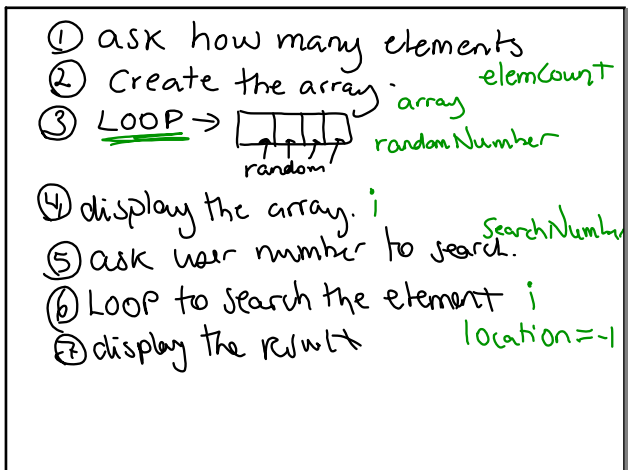 ① ask how many elements
elemCount
② Create the array.
array
③ LOOP →
randomNumber
random
④ display the array. i
SearchNumber
⑤ ask user number to search.
⑥ LOOP to search the element i
location=-1
⑦ display the result